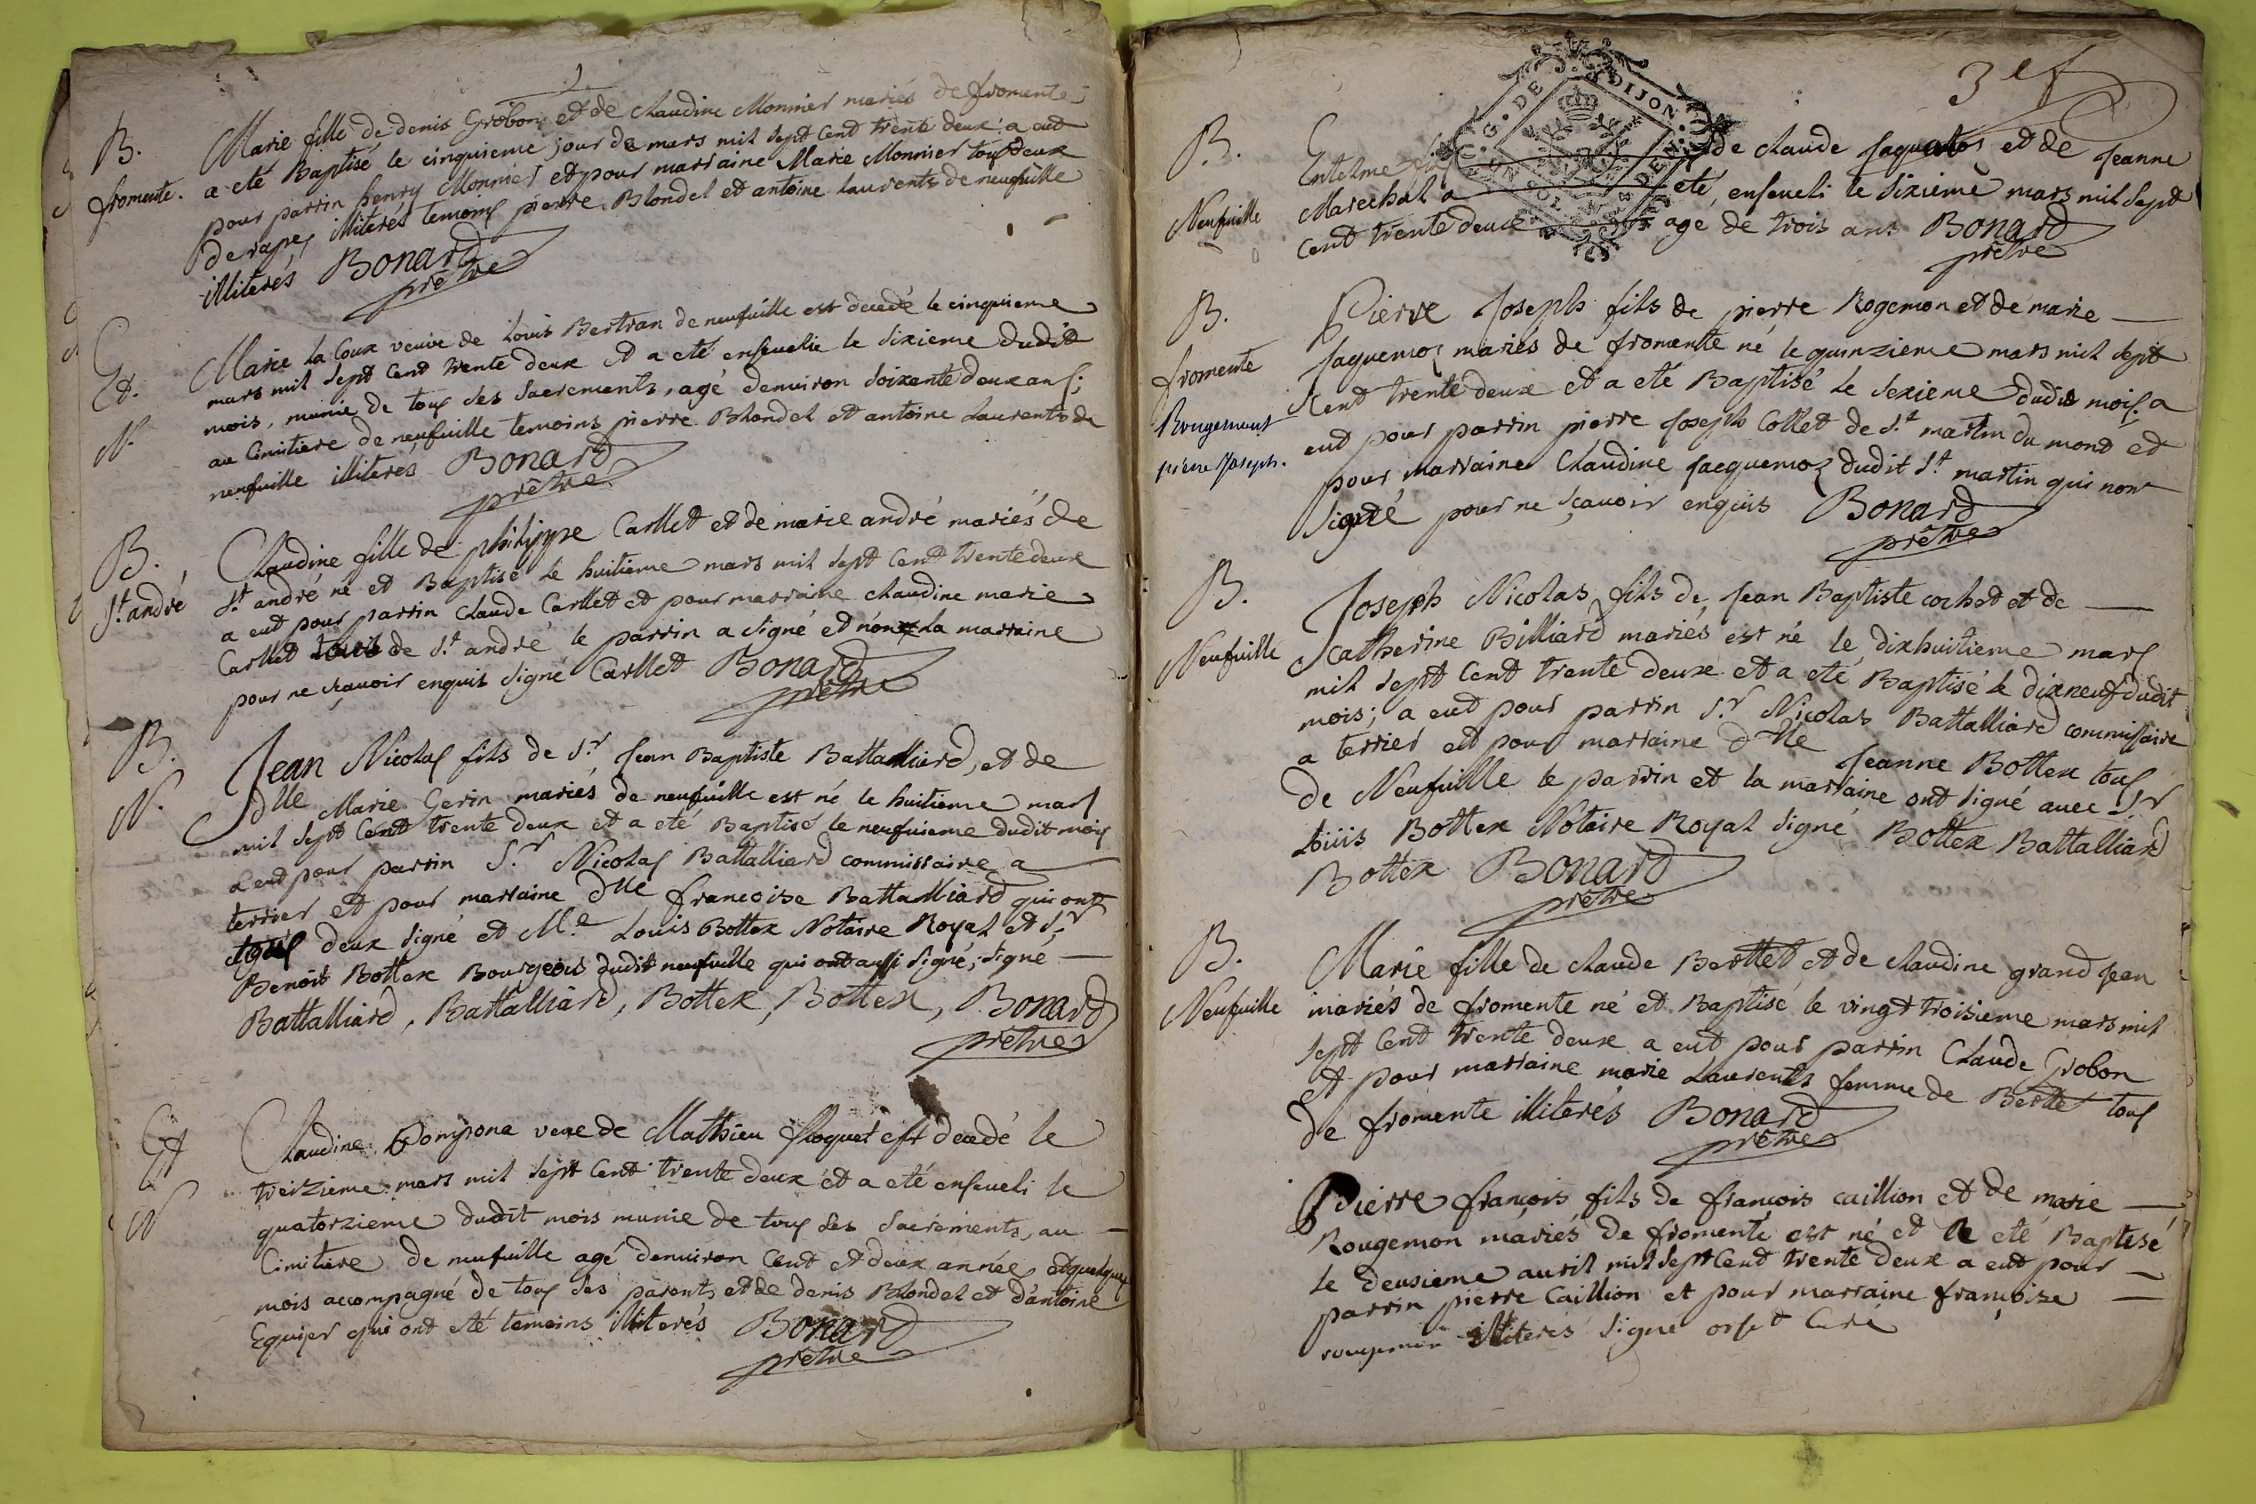 B.
fromente.
Marie fille de denis Grobon et de claudine Monnier mariés de fromente
a eté Baptisé le cinquieme jour de mars mil sept cent trente deux a eut
pour parrin henry Monnier et pour marraine Marie Monnier tous deux
de rapes illiteres temoins pierre Blondel et antoine Laurents de neufuille
illiterés Bonard
prêtre
Et.
N.
Marie la Coux veuve de Louis Bertran de neufuille est decedé le cinquieme
mars mil sept cent trente deux et a eté enseuelie le sixieme dudit
mois, munie de tous ses sacrements, agé denuiron soixente deux ans;
au Cimitiere de neufuille temoins pierre Blondel et antoine Laurents de
neufuille illiterés Bonard
prêtre
B.
St. andré
Claudine fille de philippe Carllet et de marie andré mariés de
St. andré né et Baptisé le huitieme mars mil sept cent trente deux
a eut pour parrin claude Carllet et pour marraine claudine marie
Carllet de St. andré le parrin a signé et non la marraine
pour ne sçauoir enquis signé Carllet Bonard
prêtre
B.
N.
Jean Nicolas fils de Sr. Jean Baptiste Battalliard, et de
dlle Marie Gerin mariés de neufuille est né le huitieme mars
mil sept cent trente deux et a eté Baptisé le neufuieme dudit mois
a eut pour parrin Sr. Nicolas Battalliard commissaire a
terrier et pour marraine dlle francoise Battalliard qui ont
tous deux signé et Me. Louis Bottex Notaire Royal et Sr
Benoit Bottex Bourgeois dudit neufuille qui ont aussi signé; signé
Battalliard, Battalliard, Bottex, Bottex, Bonard
prêtre
Et
N
Claudine Pompone veue de Mathieu floquet est decedé le
treizieme mars mil sept cent trente deux et a eté enseueli le
quatorzieme dudit mois munie de tous ses sacrements, au
Cimitiere de neufuille agé denuiron cent et deux année et quelques
mois accompagné de tous ses parents et de denis Blondel et d'antoine
Equier qui ont eté temoins illiterés Bonard
prêtre
3e f
G. DE DIJON
B.
Neufuille
Entelme de claude Jaquemos et de Jeanne
Marechal a eté enseueli le sixieme mars mil sept
cent trente deux agé de trois ans Bonard
prêtre
B.
fromente
Rougemont
pierre Joseph.
Pierre Joseph fils de pierre Rogemon et de marie
Jaquemoz mariés de fromente né le quinzieme mars mil sept
cent trente deux et a eté Baptisé le sezieme dudit mois; a
eut pour parrin pierre Joseph Collet de St. martin du mont et
pour marraine claudine Jacquemoz dudit St. martin qui nont
signé pour ne sçauoir enquis Bonard
prêtre
B.
Neufuille
Joseph Nicolas fils de Jean Baptiste cochet et de
catherine Billiard mariés est né le dixhuitieme mars
mil sept cent trente deux et a eté Baptisé le dixneuf dudit
mois; a eut pour parrin Sr. Nicolas Battalliard commissaire
a terrier et pour marraine dlle Jeanne Bottex tous
de Neufuille le parrin et la marraine ont signé auec Sr
Loüis Bottex Notaire Royal signé Bottex Battalliard
Bottex Bonard
prêtre
B.
Neufuille
Marie fille de claude Berttet et de claudine grand Jean
mariés de fromente né et Baptisé le vingt troisieme mars mil
sept cent trente deux a eut pour parrin Claude Grobon
et pour marraine marie Laurents femme de Berttet tous
de fromente illiterés Bonard
prêtre
Pierre francois fils de francois caillion et de marie
Rougemon mariés de fromente est né et a eté Baptisé
le deusieme auril mil sept cent trente deux a eut pour
parrin pierre Caillion et pour marraine françoise
rougemon illiteres signé orset Curé